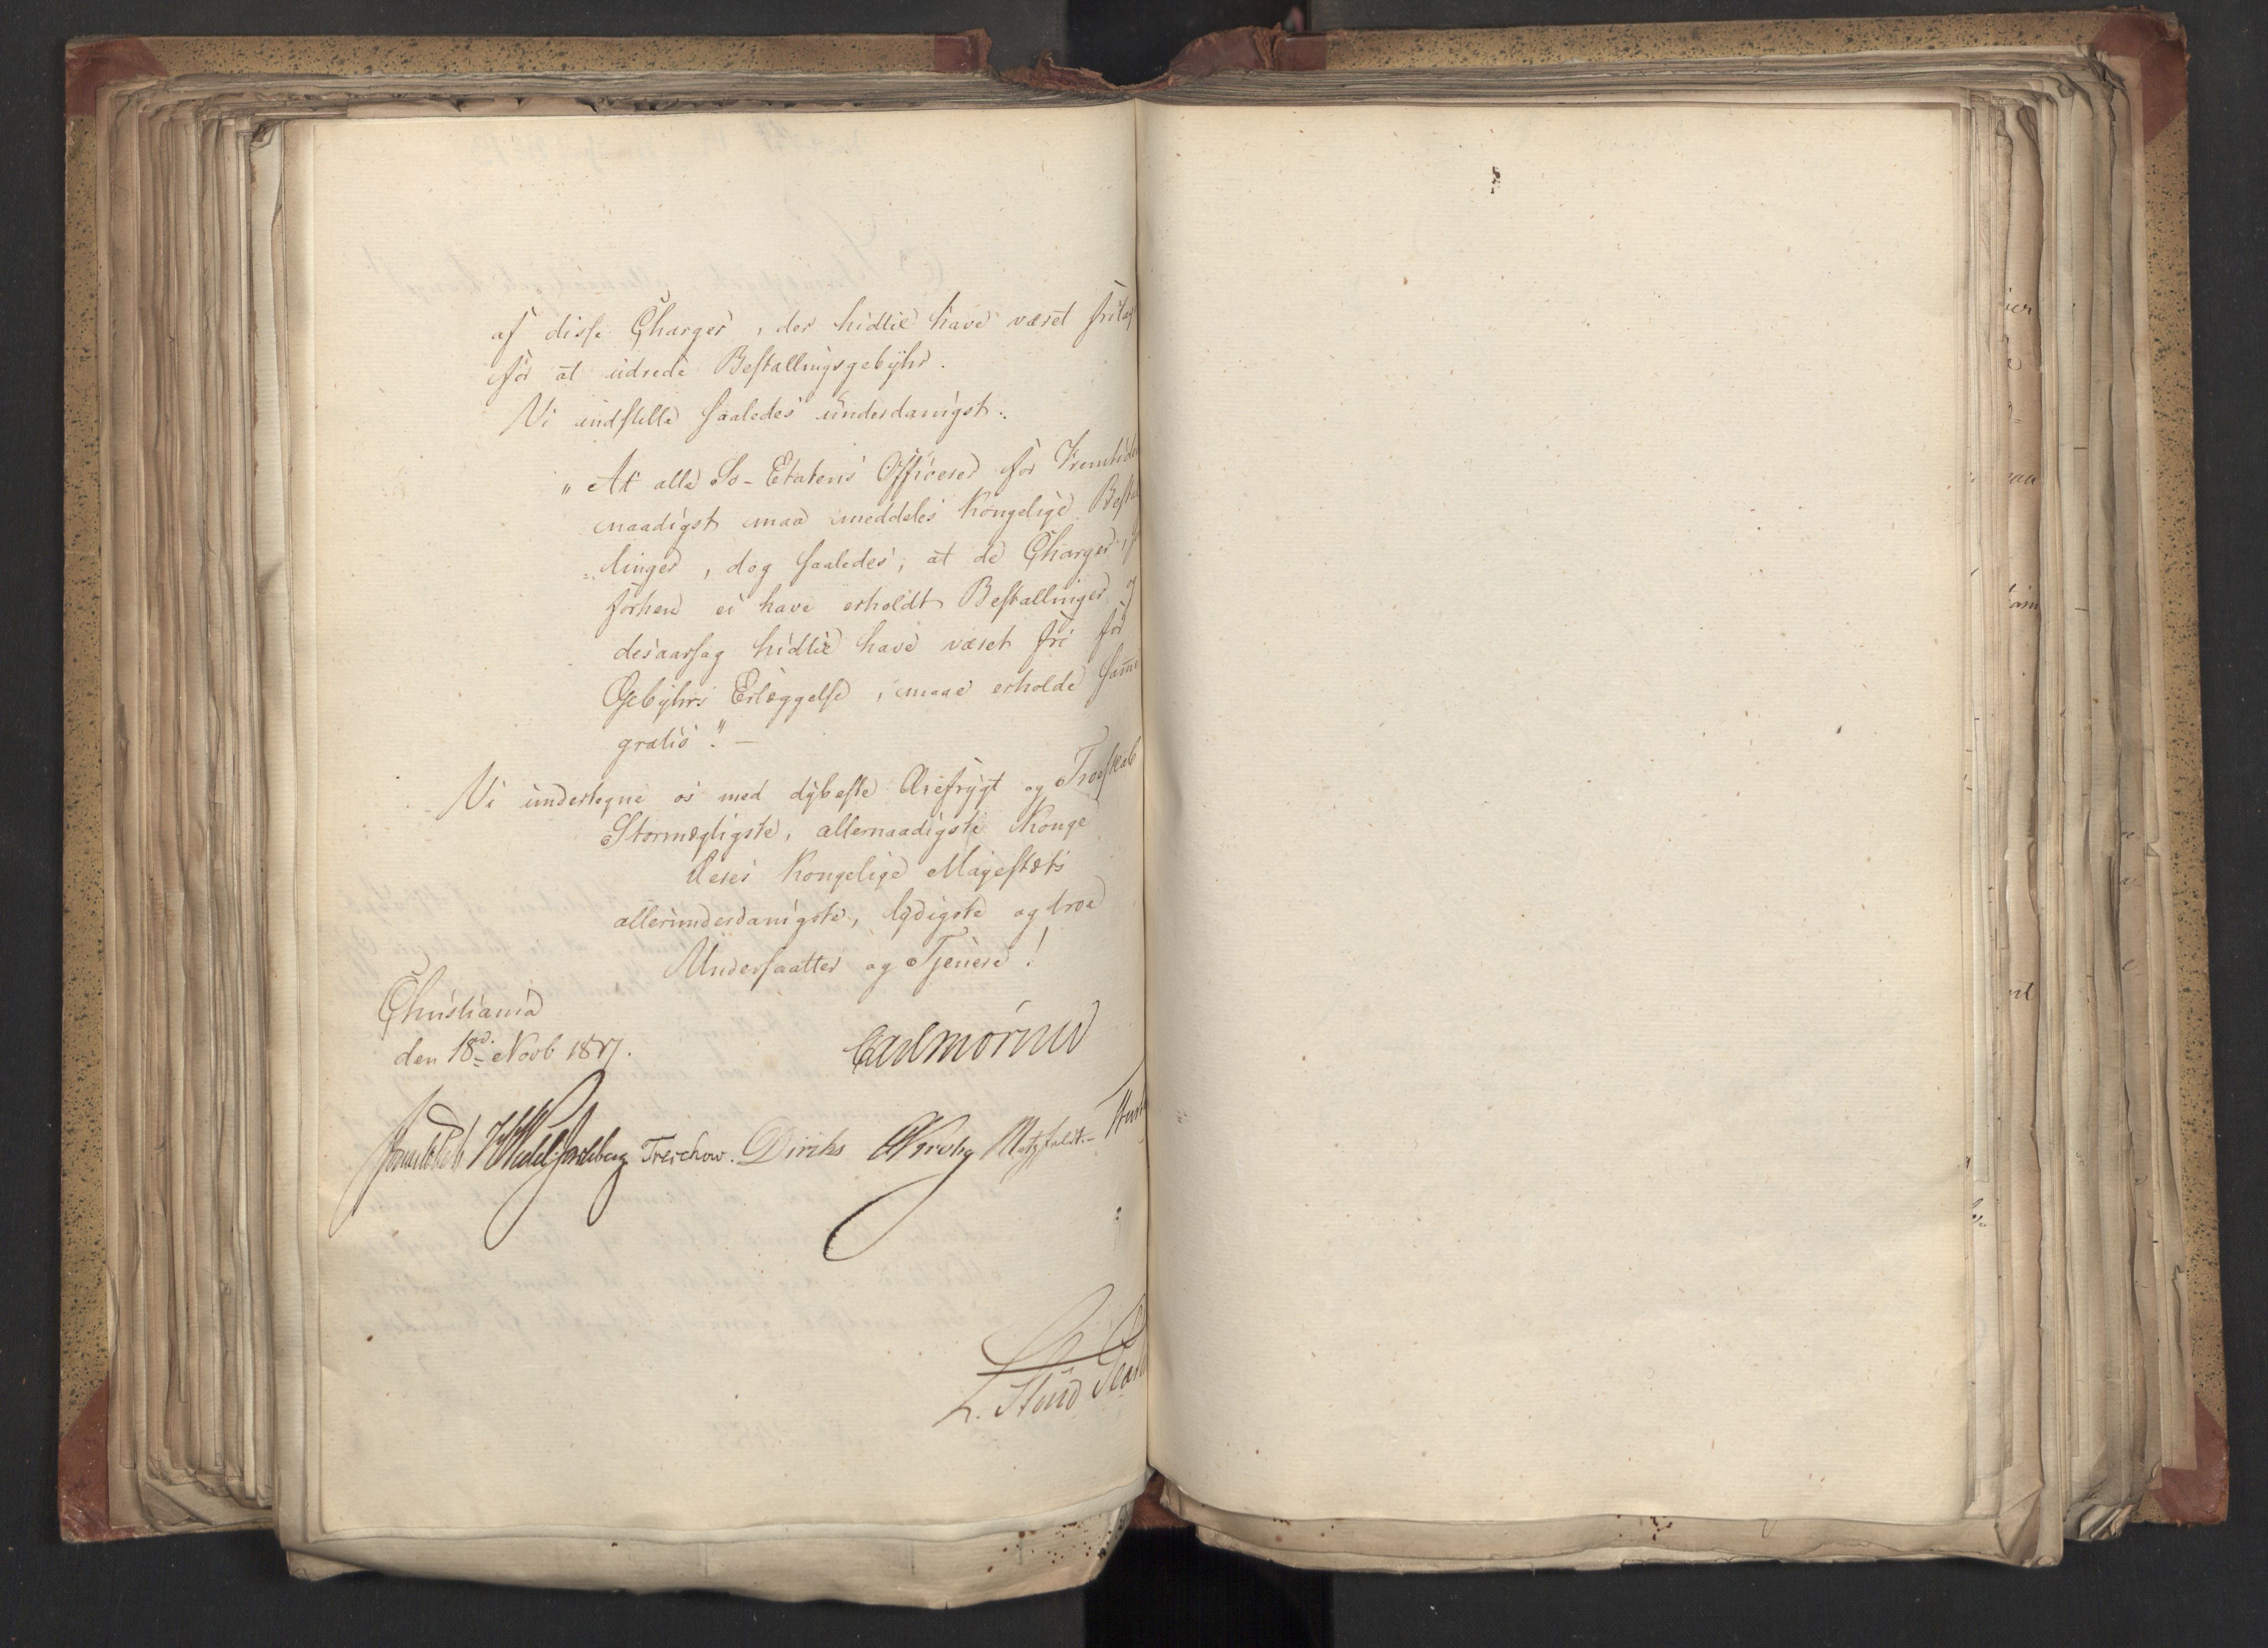 af disse Charger, der hidtil have været fritag
for at udrede Bestallingsgebyhr.
Vi indstille saaledes underdanigst:
"At alle Sø-Etatens Officerer for Fremtide
naadigst maa meddeles Kongelige Bestal
"linger, dog saaledes, at de Charger,
forhen ei have erholdt Bestallinger og
desaarsag hidtil have været fri for
Gebyhrs Erlæggelse, maae erholde samme
gratis". —
Vi undertegne os med dybeste Ærefrygt og Troeskab
Stormægtigste, allernaadigste Konge
Deres Kongelige Majestæts
allerunderdanigste, lydigste og troe
Undersaatter og Tjenere!
Christiania
den 18de Novb 1817.
Carl Mörner
Sommerhielm HWedel Jarlsberg Treschow. Diriks Krohg Motzfeldt.
L. Stud Plat